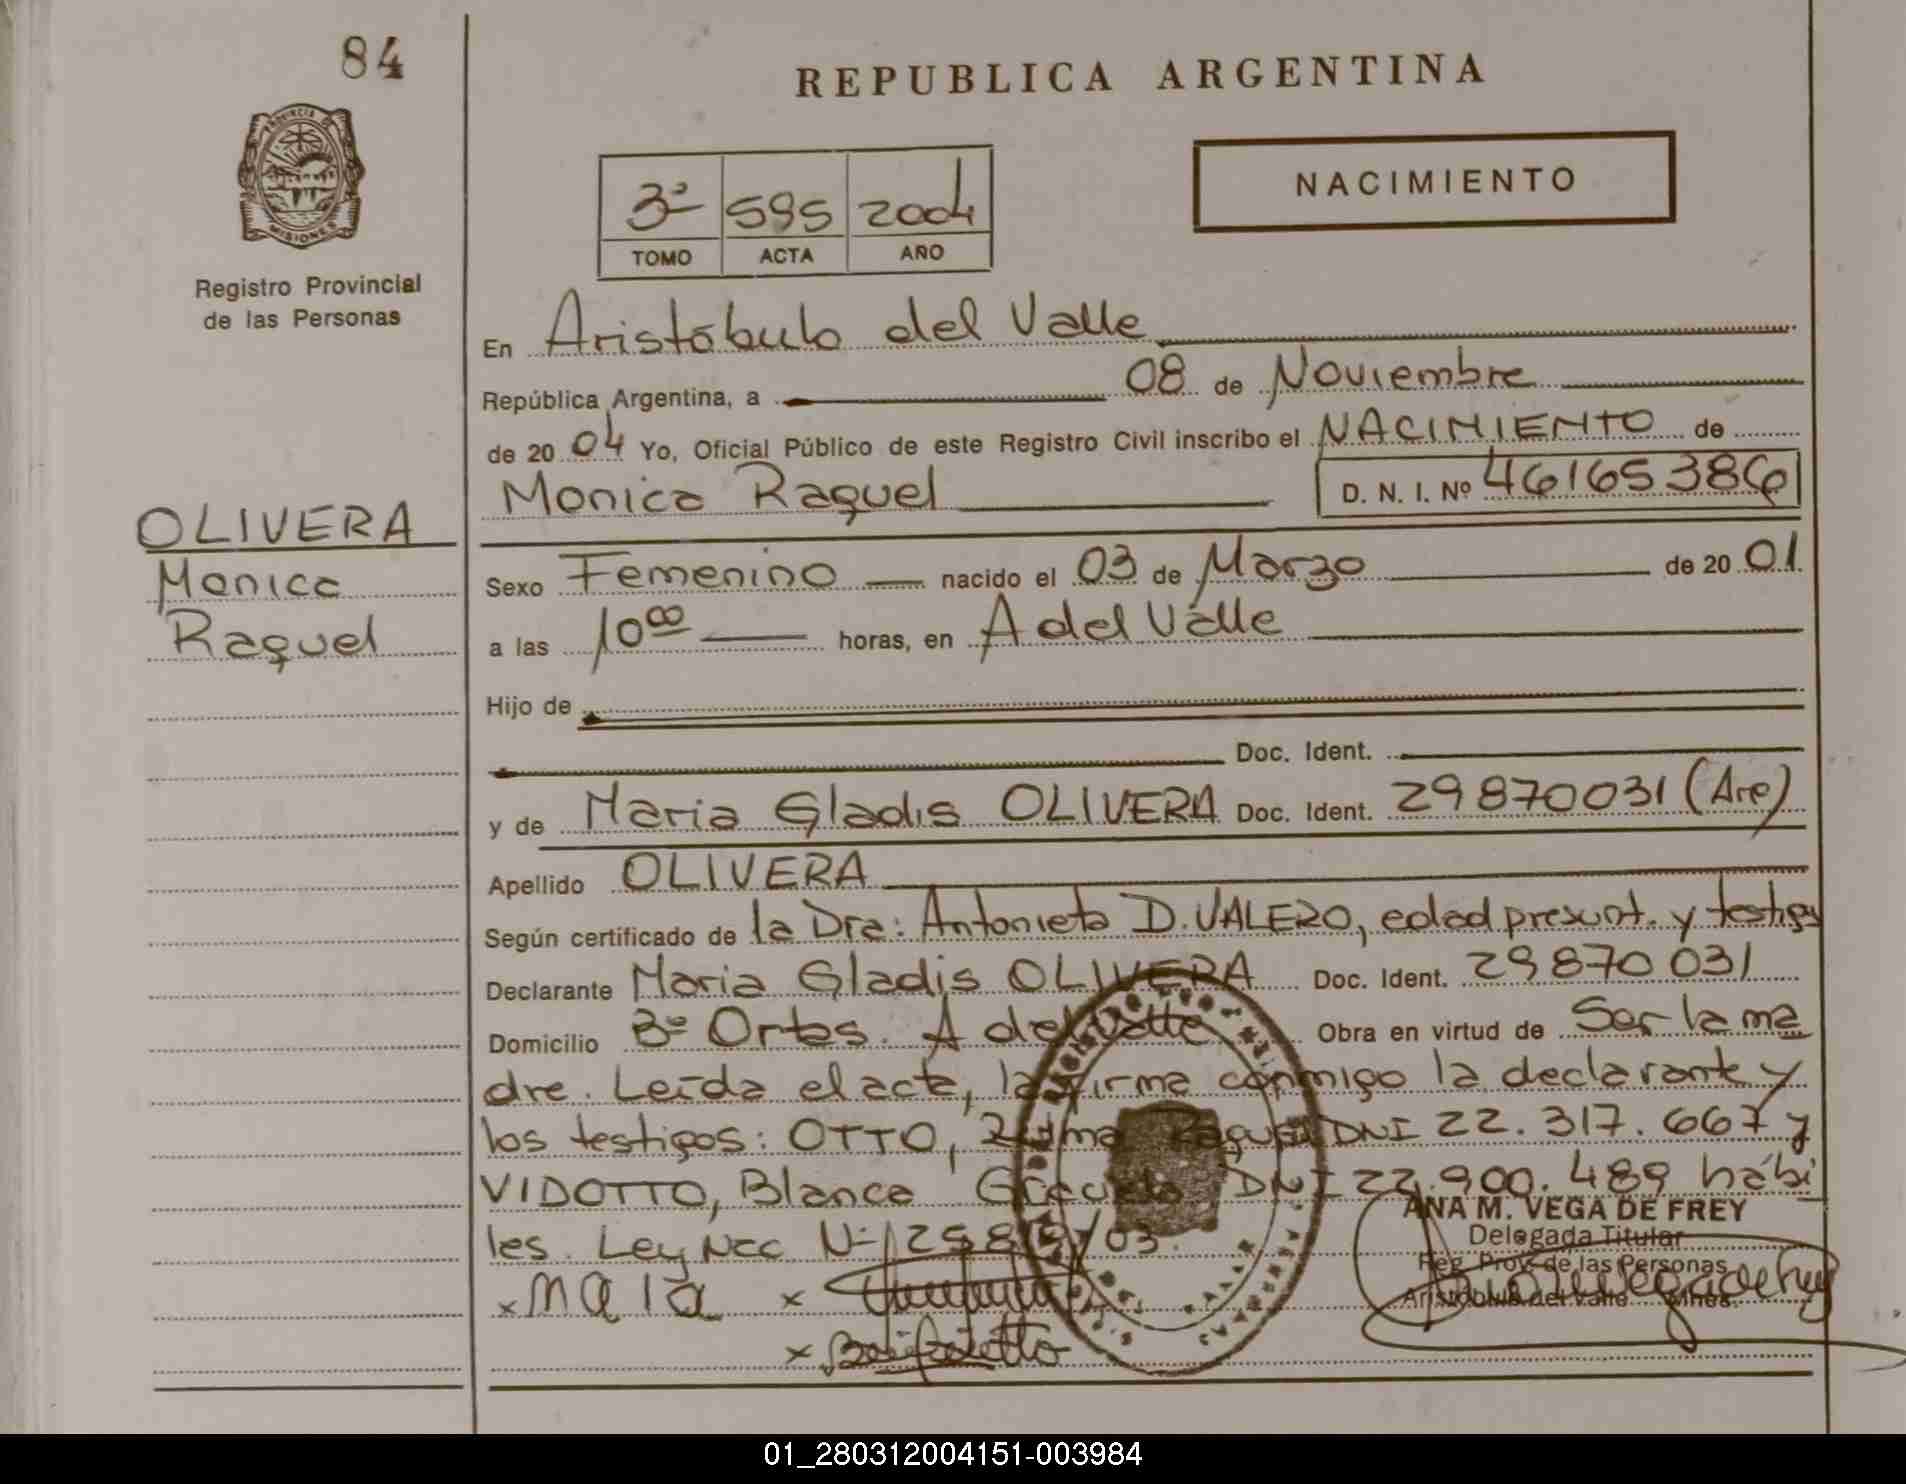 84
REPUBLICA ARGENTINA
PROVINCIA DE
MISIONES
Registro Provincial
de las Personas
3º 595 2004
TOMO ACTA AÑO
NACIMIENTO
En Aristóbulo del Valle
República Argentina, a 08 de Noviembre
de 20 04 Yo, Oficial Público de este Registro Civil inscribo el NACIMIENTO de
Monica Raquel D. N. I. Nº 46165386
OLIVERA
Monica
Raquel
Sexo Femenino nacido el 03 de Marzo de 20 01
a las 10 00 horas, en A del Valle
Hijo de
Doc. Ident.
y de Maria Gladis OLIVERA Doc. Ident. 29870031 (Are)
Apellido OLIVERA
Según certificado de la Dra: Antonieta D. VALERO, edad presunt. y testigs
Declarante Maria Gladis OLIVERA Doc. Ident. 29870031
Domicilio 3º Ortes. A del Valle Obra en virtud de Ser la ma
dre. Leída el acta, la firma conmigo la declarante y
los testigos: OTTO, Raquel DNI 22.317.667 y
VIDOTTO, Blanca Graciela DNI 22.900.489 hábi
les. Ley Nac Nº
x x
x
ANA M. VEGA DE FREY
Delegada Titular
Reg. Prov. de las Personas
Aristóbulo del Valle Mnes.
01_280312004151-003984